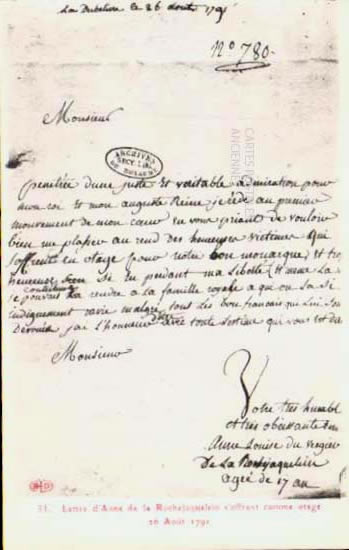 La Dubeliere le 26 Aout 1791
N° 780.
Monsieur
ARCHIVES
pénétrée dune juste et véritable admiration pour
mon roi et mon auguste Reine, je cède au premier
mouvement de mon cœur en vous priant de vouloir
bien me placer au rend des heureuses victimes qui
s'offrent en otage pour notre bon monarque, et trop
heureuse si en perdant ma Liberté
je pouvais La rendre a la famille royale a qui on La si
indignement ravie malgré tous les bons francais que Lui son
Devoués jai l'honneur Detre toute sestime qui vous est due
Monsieur
Votre très humble
et très obeissante
Anne Louise du Vergier
De La Rochejaquelein
agée de 17 an
CARTES
ANCIENNES
ELD
31. Lettre d'Anne de la Rochejaquelein s'offrant comme otage
26 Août 1791